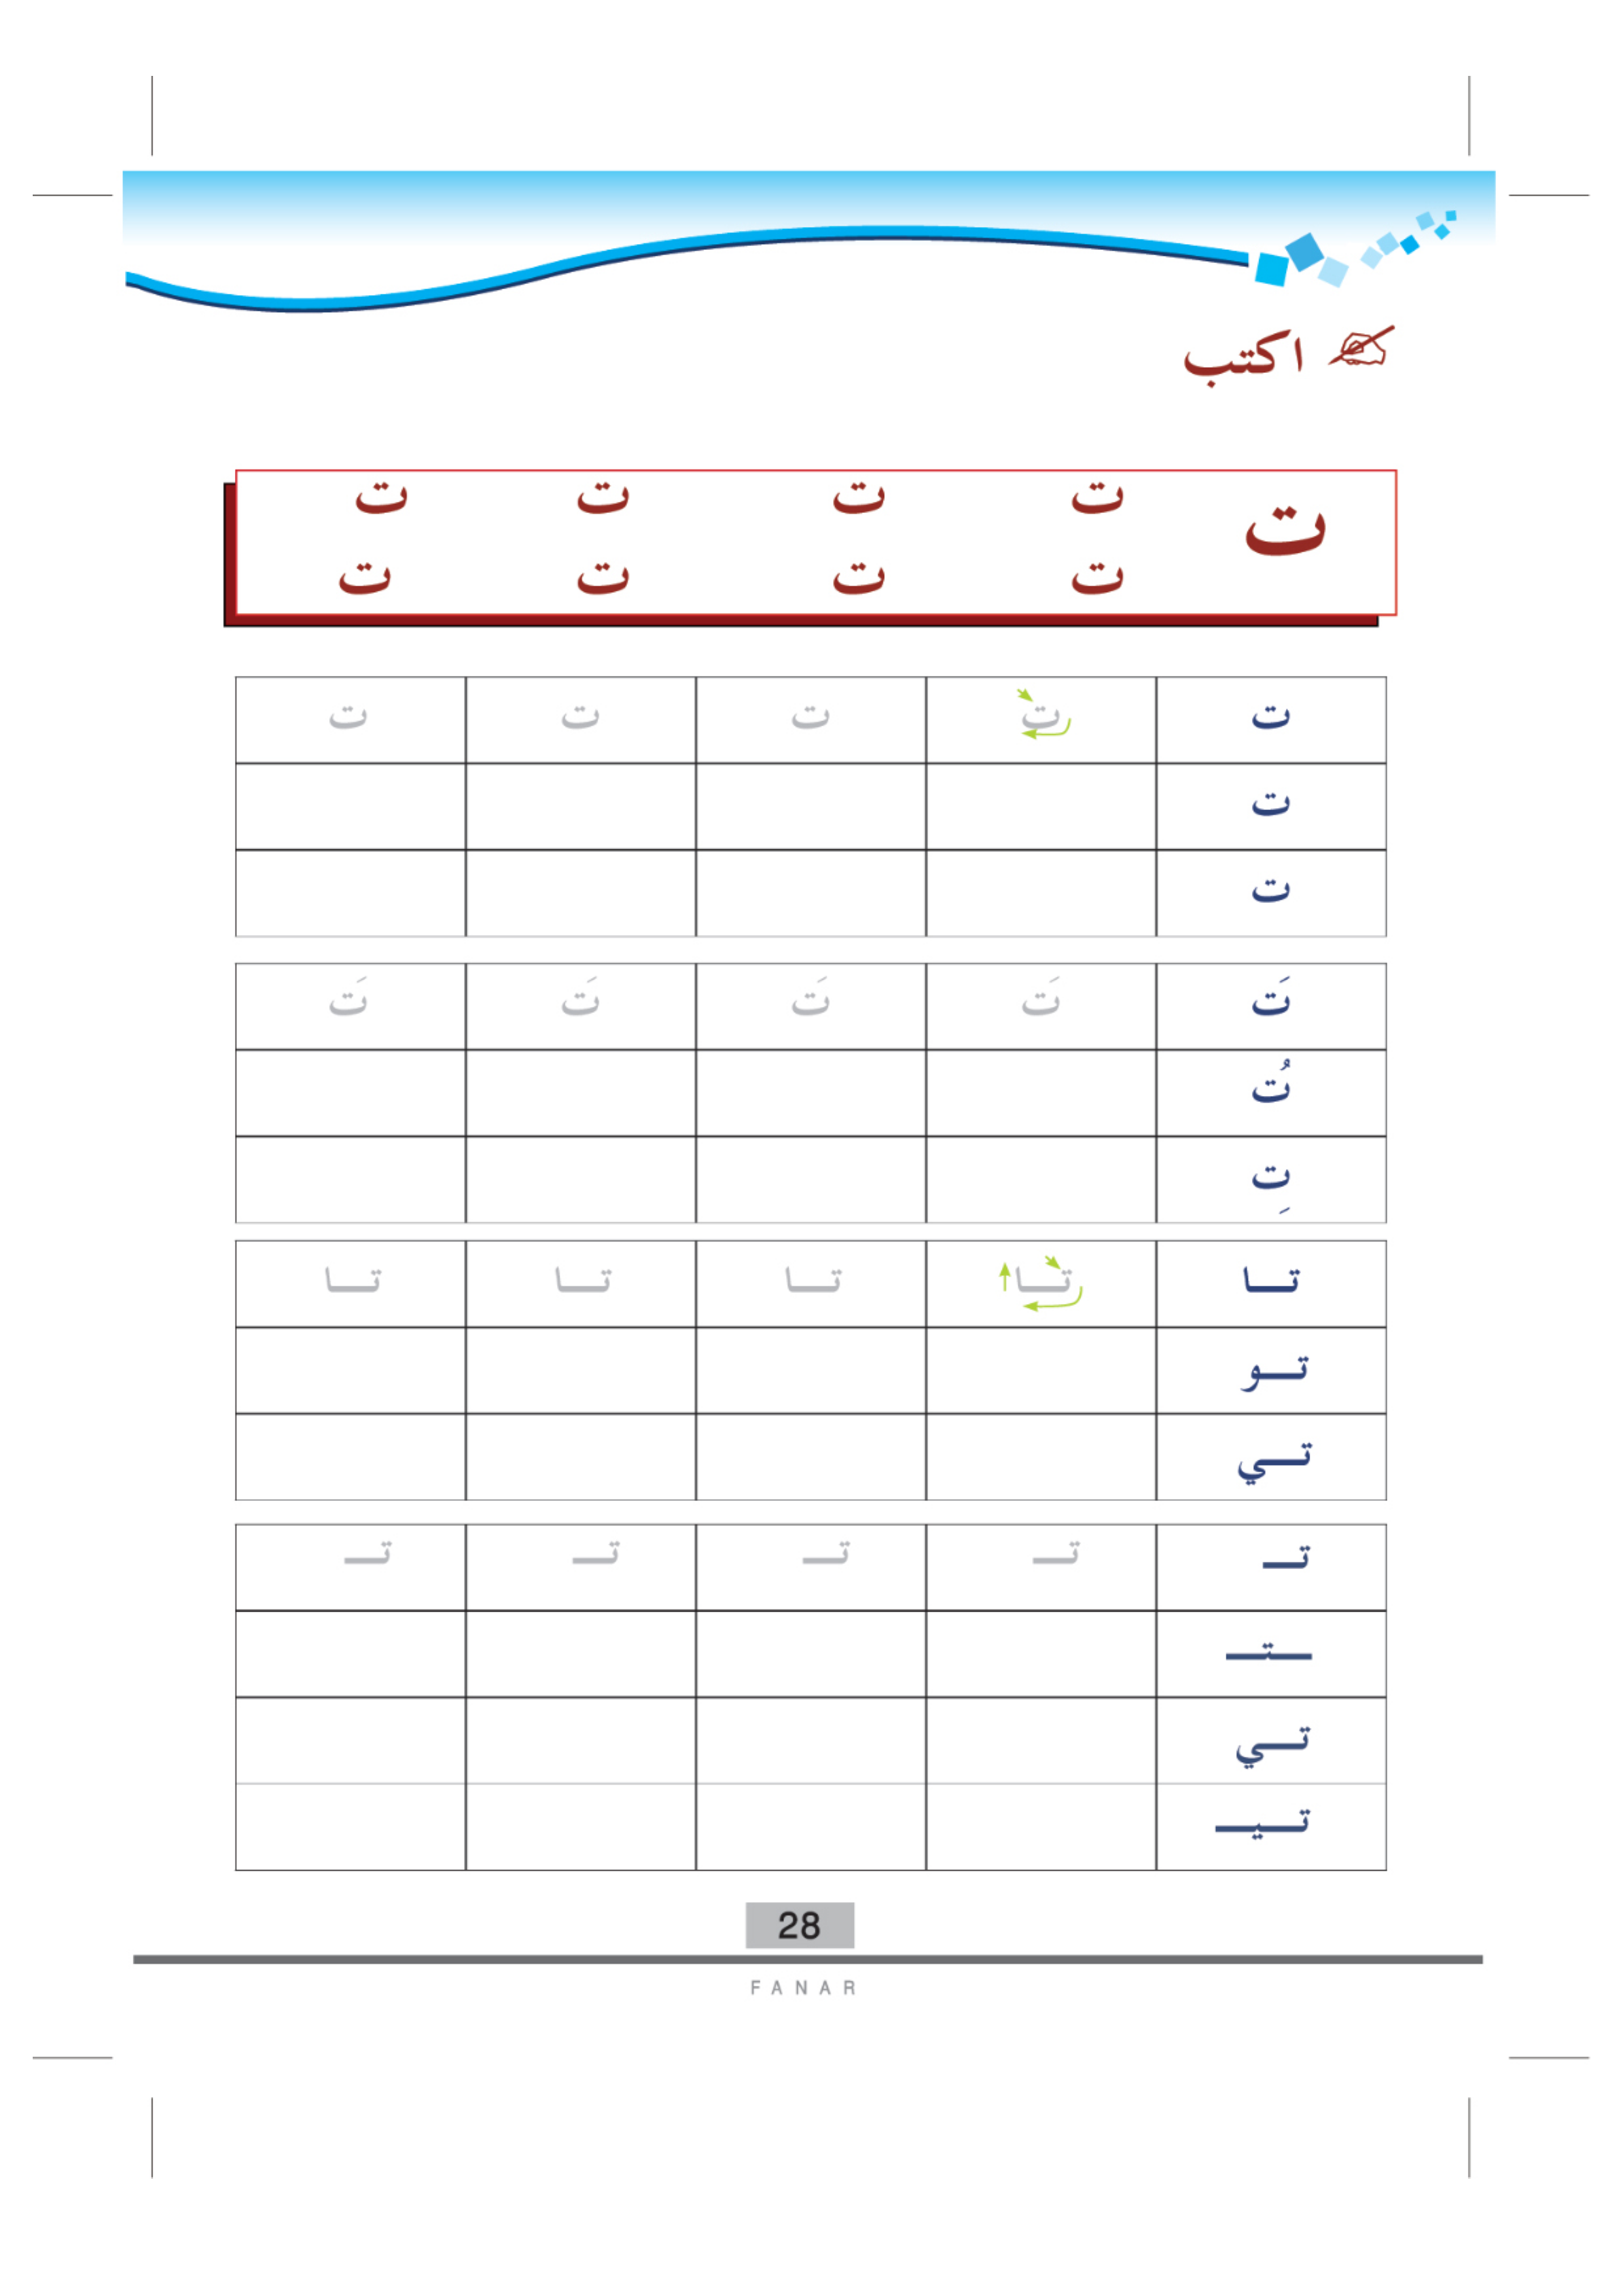 اكتب
ت ت ت ت ت
ت ت ت ت
ت ت ت ت ت
ت
ت
تَ تَ تَ تَ تَ
تُ
تِ
تــا تــا تــا تــا تــا
تــو
تــي
تــ تــ تــ تــ تــ
ــتــ
تــي
تــيــ
28
FANAR